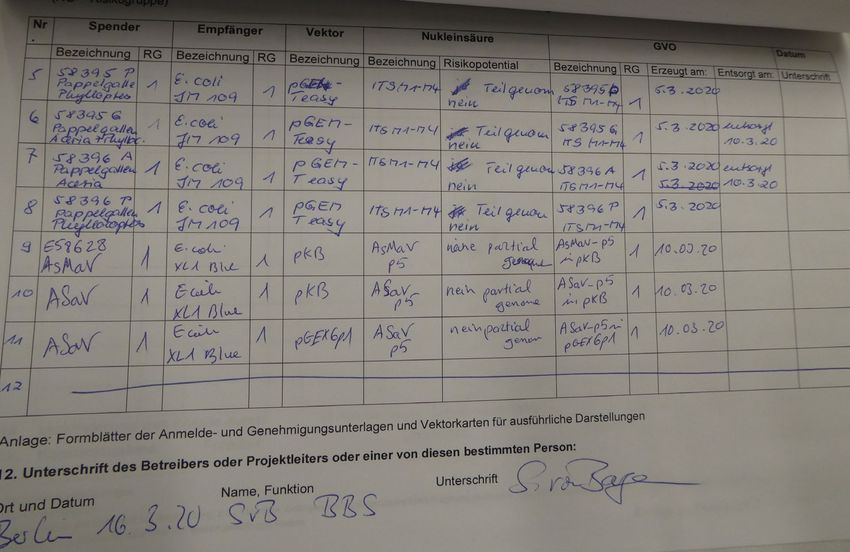 (RG = Risikogruppe)
Nr. Spender Empfänger Vektor Nukleinsäure GVO Datum
Bezeichnung RG Bezeichnung RG Bezeichnung Bezeichnung Risikopotential Bezeichnung RG Erzeugt am: Entsorgt am: Unterschrift
5 58395 P 1 E. coli 1 pGEM- ITS M1-M4 Teilgenom 58395 P 1 5.3.2020
Pappelgalle JM 109 Teasy nein ITS M1-M4
Phylloptes
6 58395 G 1 E. coli 1 pGEM- ITS M1-M4 Teilgenom 58395 G 1 5.3.2020 entsorgt
Pappelgallen JM 109 Teasy nein ITS M1-M4 10.3.20
Aceria
7 58396 A 1 E. coli 1 pGEM- ITS M1-M4 Teilgenom 58396 A 1 5.3.2020 entsorgt
Pappelgallen JM 109 Teasy nein ITS M1-M4 5.3.2020 10.3.20
Aceria
8 58396 P 1 E. coli 1 pGEM ITS M1-M4 Teilgenom 58396 P 1 5.3.2020
Pappelgallen JM 109 Teasy nein ITS M1-M4
9 E58628 1 E. coli 1 pKB AsMaV partial AsMaV-p5 1 10.03.20
AsMaV XL1 Blue p5 genome in pKB
10 ASaV 1 E coli 1 pKB ASaV nein partial ASaV-p5 1 10.03.20
XL1 Blue p5 genome in pKB
11 ASaV 1 E coli 1 pGEX6p1 ASaV nein partial ASaV-p5 in 1 10.03.20
XL1 Blue p5 genom pGEX6p1
12
Anlage: Formblätter der Anmelde- und Genehmigungsunterlagen und Vektorkarten für ausführliche Darstellungen
12. Unterschrift des Betreibers oder Projektleiters oder einer von diesen bestimmten Person:
Ort und Datum Name, Funktion Unterschrift
Berlin 16.3.20 SvB BBS